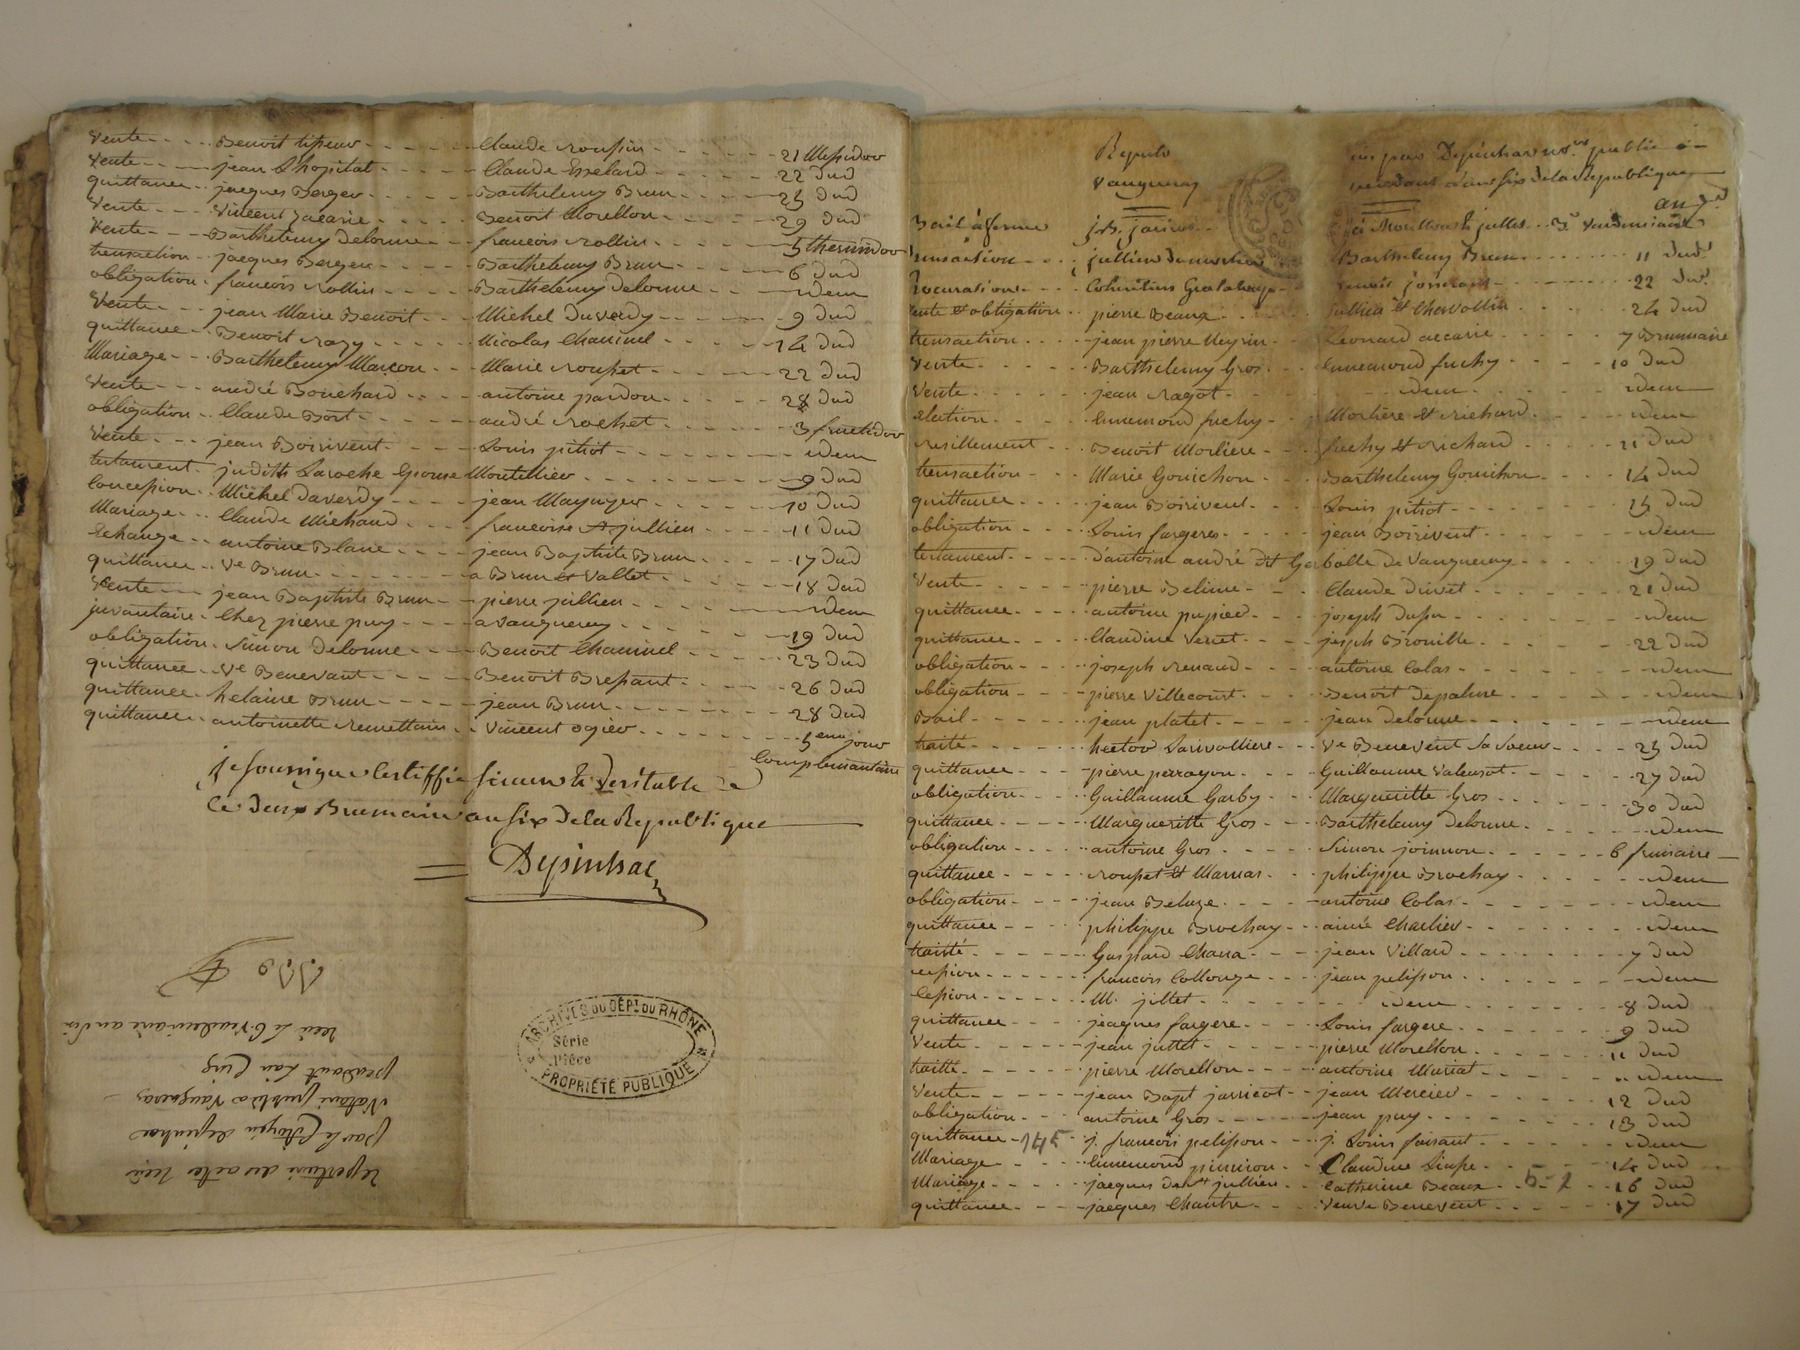 Vente - - - Benoit tisseur - - - - - Claude roussin - - - - - 21 Messidor
Vente - - - jean L'hopital - - - - Claude Esselard - - - - - 22 dud
quittance - - jacques Berger - - - - Barthelemy Brun - - - - 25 dud
Vente - - - Vincent Jacarie - - - - Benoit Morellon - - - - 29 dud
Vente - - - Barthelemy Delorme - - françois rollin - - - - 5 thermidor
transaction - jacques Berger - - - - Barthelemy Brun - - - - 6 dud
obligation - françois rollin - - - - Barthelemy Delorme - - - idem
Vente - - - jean Marie Benoit - - - Michel Duverdy - - - - 9 dud
quittance - Benoit razy - - - - - Nicolas Chaninel - - - - 14 dud
Mariage - - Barthelemy Marcou - - - Marie rousset - - - - 22 dud
Vente - - - andré Bouchard - - - - antoine pardon - - - - 28 dud
obligation - - Claude Bort - - - - andré rochet - - - - 3 fructidor
Vente - - - jean Boirivent - - - - Louis pitiot - - - - - idem
testament - judith Laroche Epouse Montellier - - - - - - - 9 dud
Concession - Michel Daverdy - - - - jean Maynyer - - - - - 10 dud
Mariage - - Claude Michaud - - - - françoise jullien - - - - 11 dud
Echange - - antoine Blanc - - - - jean Baptiste Brun - - - - 17 dud
quittance - - Ve Brun - - - - - - a Brun et Vallet - - - - 18 dud
Vente - - - jean Baptiste Brun - - pierre jullien - - - - - idem
juvantaire - Chez pierre puy - - - a Vaugneray - - - - - - 19 dud
obligation - Simon Delorme - - - - Benoit Chaninel - - - - 23 dud
quittance - - Ve Benevant - - - - Benoit Bressant - - - - - 26 dud
quittance - - helaine Brun - - - - jean Brun - - - - - - - 28 dud
quittance - - antoinette remettain - - Vincent ogier - - - - - - 5eme jour
Complemantaire
je soussigne Certiffie sincere & Veritable
Ce deux Brumaire an six de la Republique
Depinhac
ARCHIVES DU DÉPt DU RHÔNE
Série
Pièce
PROPRIÉTÉ PUBLIQUE
repertoire des actes reçus
par le Citoyen depinhac
Notaire public a Vaugneray
pendant l'an Cinq
an six
Vaugneray
pendant l'an six de la Republique
Bail à ferme - - - 3e Vendemiaire
transaction - - - Barthelemy Brun - - - - - 11 dud
procuration - - - 22 dud
Vente et obligation - - pierre Beaux - - - - 24 dud
transaction - - - - jean pierre Meyrin - - - Leonard accarie - - - - 7 Brumaire
Vente - - - - - Barthelemy Gros - - - Ennemond fuchy - - - - 10 dud
Vente - - - - - jean ragot - - - - - idem - - - - - idem
Ennemond fuchy - - Morliere et richard - - - - idem
resillement - - - - Benoit Morliere - - - fuchy et richard - - - - 11 dud
transaction - - - Marie Gonichon - - - Barthelemy Gonichon - - - - 14 dud
quittance - - - - jean Boirivent - - - Louis pitiot - - - - - 15 dud
obligation - - - - Louis fargeres - - - - jean Boirivent - - - - - idem
testament - - - - d'antoine andré dit Garbolle de Vaugneray - - - - - 19 dud
Vente - - - - - pierre Belime - - - Claude Duret - - - - - 21 dud
quittance - - - - antoine pupied - - - joseph - - - - - - idem
quittance - - - - Claudine Verset - - - joseph Brouille - - - - 22 dud
obligation - - - joseph renaud - - - antoine Colas - - - - - idem
obligation - - - pierre Villecourt - - - Benoit Depalme - - - - - idem
Bail - - - - - jean platet - - - - - jean delorme - - - - - idem
traité - - - - - hector Larivolliere - - - Ve Benevent sa soeur - - - - 25 dud
quittance - - - - pierre perrayon - - - Guillaume Valensot - - - - 27 dud
obligation - - - Guillaume Garby - - - Margueritte Gros - - - - - 30 dud
quittance - - - Margueritte Gros - - - Barthelemy Delorme - - - - - idem
obligation - - - antoine Gros - - - - Simon joinnon - - - - - 6 frimaire
quittance - - - rousset et Marnas - - - philippe Brochay - - - - - idem
obligation - - - jean Deluze - - - - antoine Colas - - - - - - idem
quittance - - - philippe Brochay - - aimé Charlier - - - - - - idem
traité - - - - Gaspard Chana - - - jean Villard - - - - - - 7 dud
Cession - - - - françois Collonge - - - jean pelisson - - - - - idem
Cession - - - - M. jillet - - - - - idem - - - - - - 8 dud
quittance - - - jacques fargere - - - Louis fargere - - - - - 9 dud
Vente - - - - jean juttet - - - - pierre Morellon - - - - - 11 dud
traitté - - - - pierre Morellon - - - antoine Muriat - - - - - idem
Vente - - - - jean Bapt jarricot - - jean Mercier - - - - - 12 dud
obligation - - - antoine Gros - - - - jean puy - - - - - - 13 dud
quittance - 145 - j. françois pelisson - - j. Louis faisant - - - - idem
Mariage - - - - Ennemond pinniron - - Claudine - - - - 14 dud
Mariage - - - - jacques jullien - - Catherine Beaux - - 5-2 - 16 dud
quittance - - - jacques Chantre - - - Veuve Benevent - - - - - 17 dud